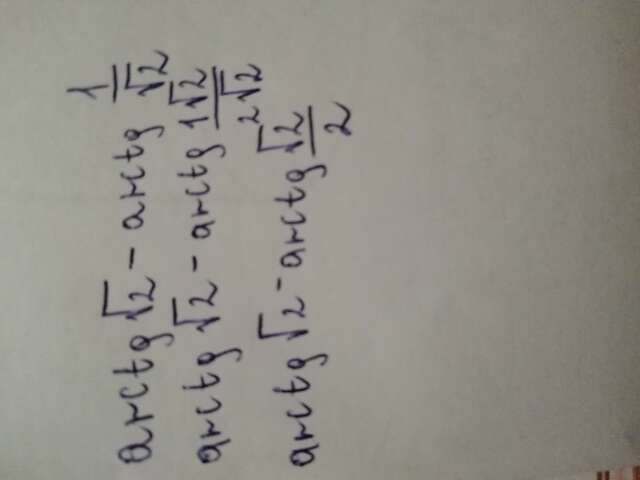 arctg √2 - arctg 1/√2
arctg √2 - arctg 1√2/2√2
arctg √2 - arctg √2/2